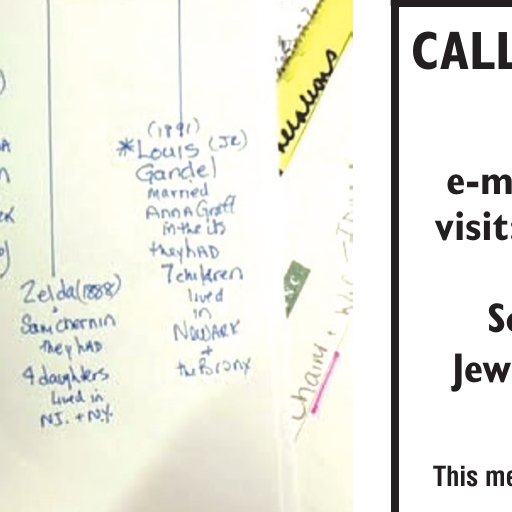 (1891)
*Louis (JR)
Gandel
married
Anna Graff
in the U.S
they HAD
7 children
lived
in
NEWARK
+
the Bronx
Zelda (1888)
+
Sam Chernin
they HAD
4 daughters
lived in
N.J. + N.Y.
relations
CALL
e-m
visit:
So
Jew
This me